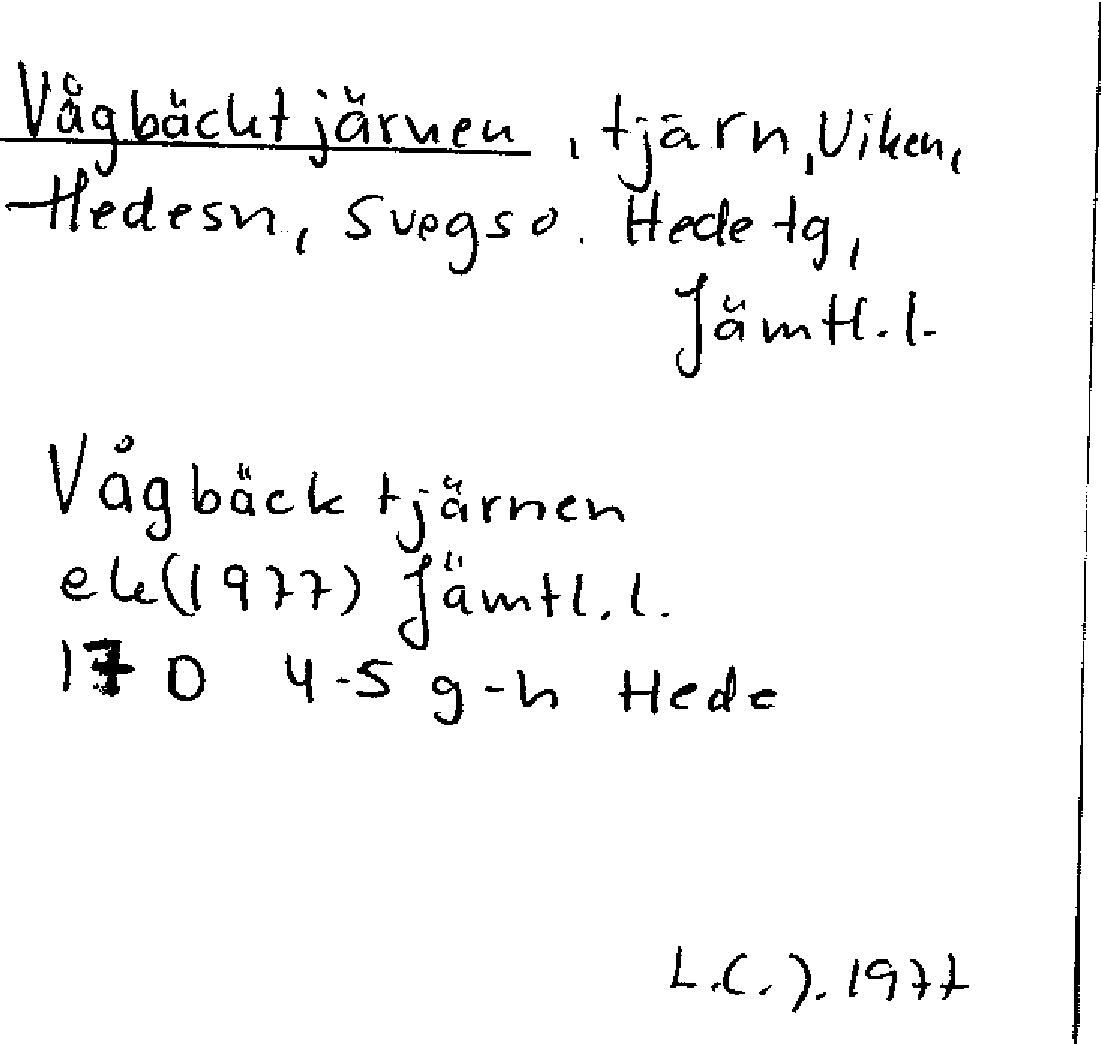 Vågbäcktjärnen, tjärn, Viken,
Hedesn, Svegs o. Hede tg,
Jämtl.l.
Vågbäcktjärnen
ek(1977) Jämtl.l.
17 D 4-5 g-h Hede
1977